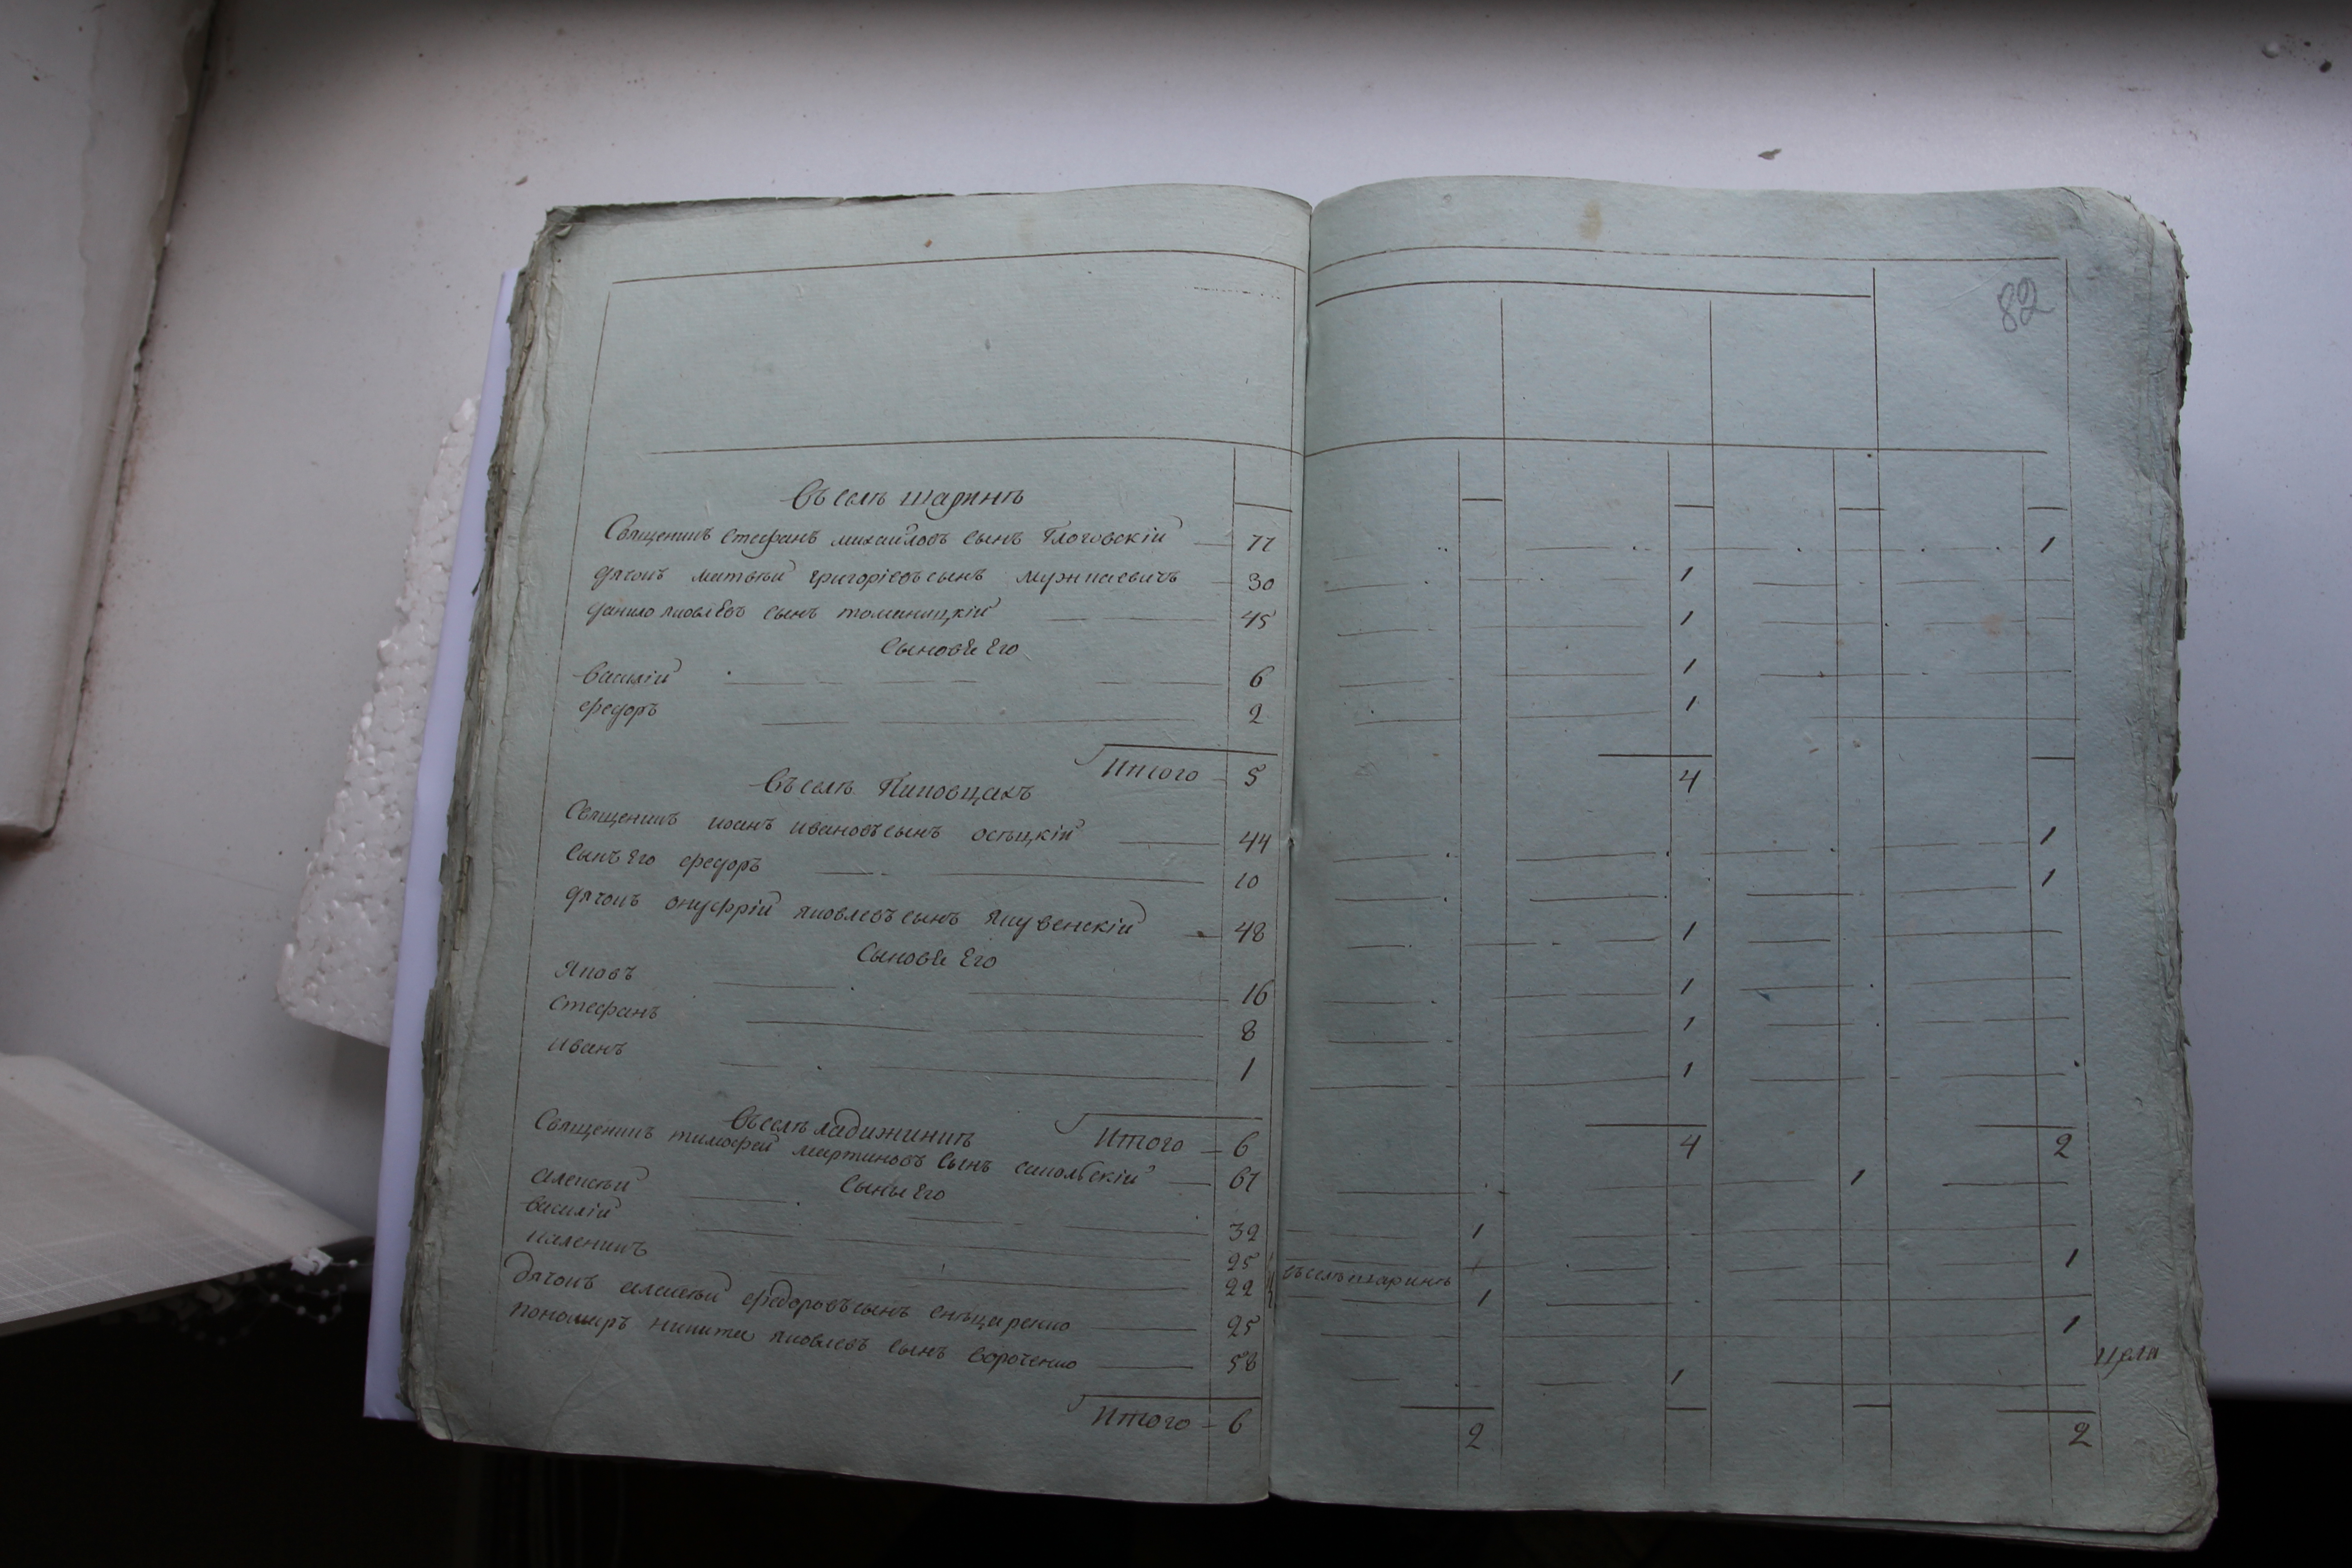 82
Въ селѣ шаринѣ
Священикъ стефанъ михайловъ сынъ Глоговскій 77
дячокъ матвѣй григоріевъ сынъ 30 1
данило яковлевъ сынъ томаницкій 45 1
Сыновѣ Его
василій 6 1
федоръ 2 1
Итого 5 4
Въ селѣ
Священикъ иоанъ ивановъ сынъ осѣцкій 44 1
сынъ Его федоръ 10 1
дячокъ онуфрій яковлевъ сынъ 48 1
Сыновѣ Его
Яковъ 16 1
стефанъ 8 1
иванъ 1 1
Итого 6 4 2
Въ селѣ ладижинкѣ
Священикъ тимофей мартиновъ сынъ сакольскій 67 1
Сыны Его
алексѣй 32 1
василій 25 1
каленикъ 22 въ селѣ шаринѣ 1
Дячокъ алексѣй федоровъ сынъ 25 1
пономаръ никита яковлевъ сынъ 58 1
Итого 6 2 2